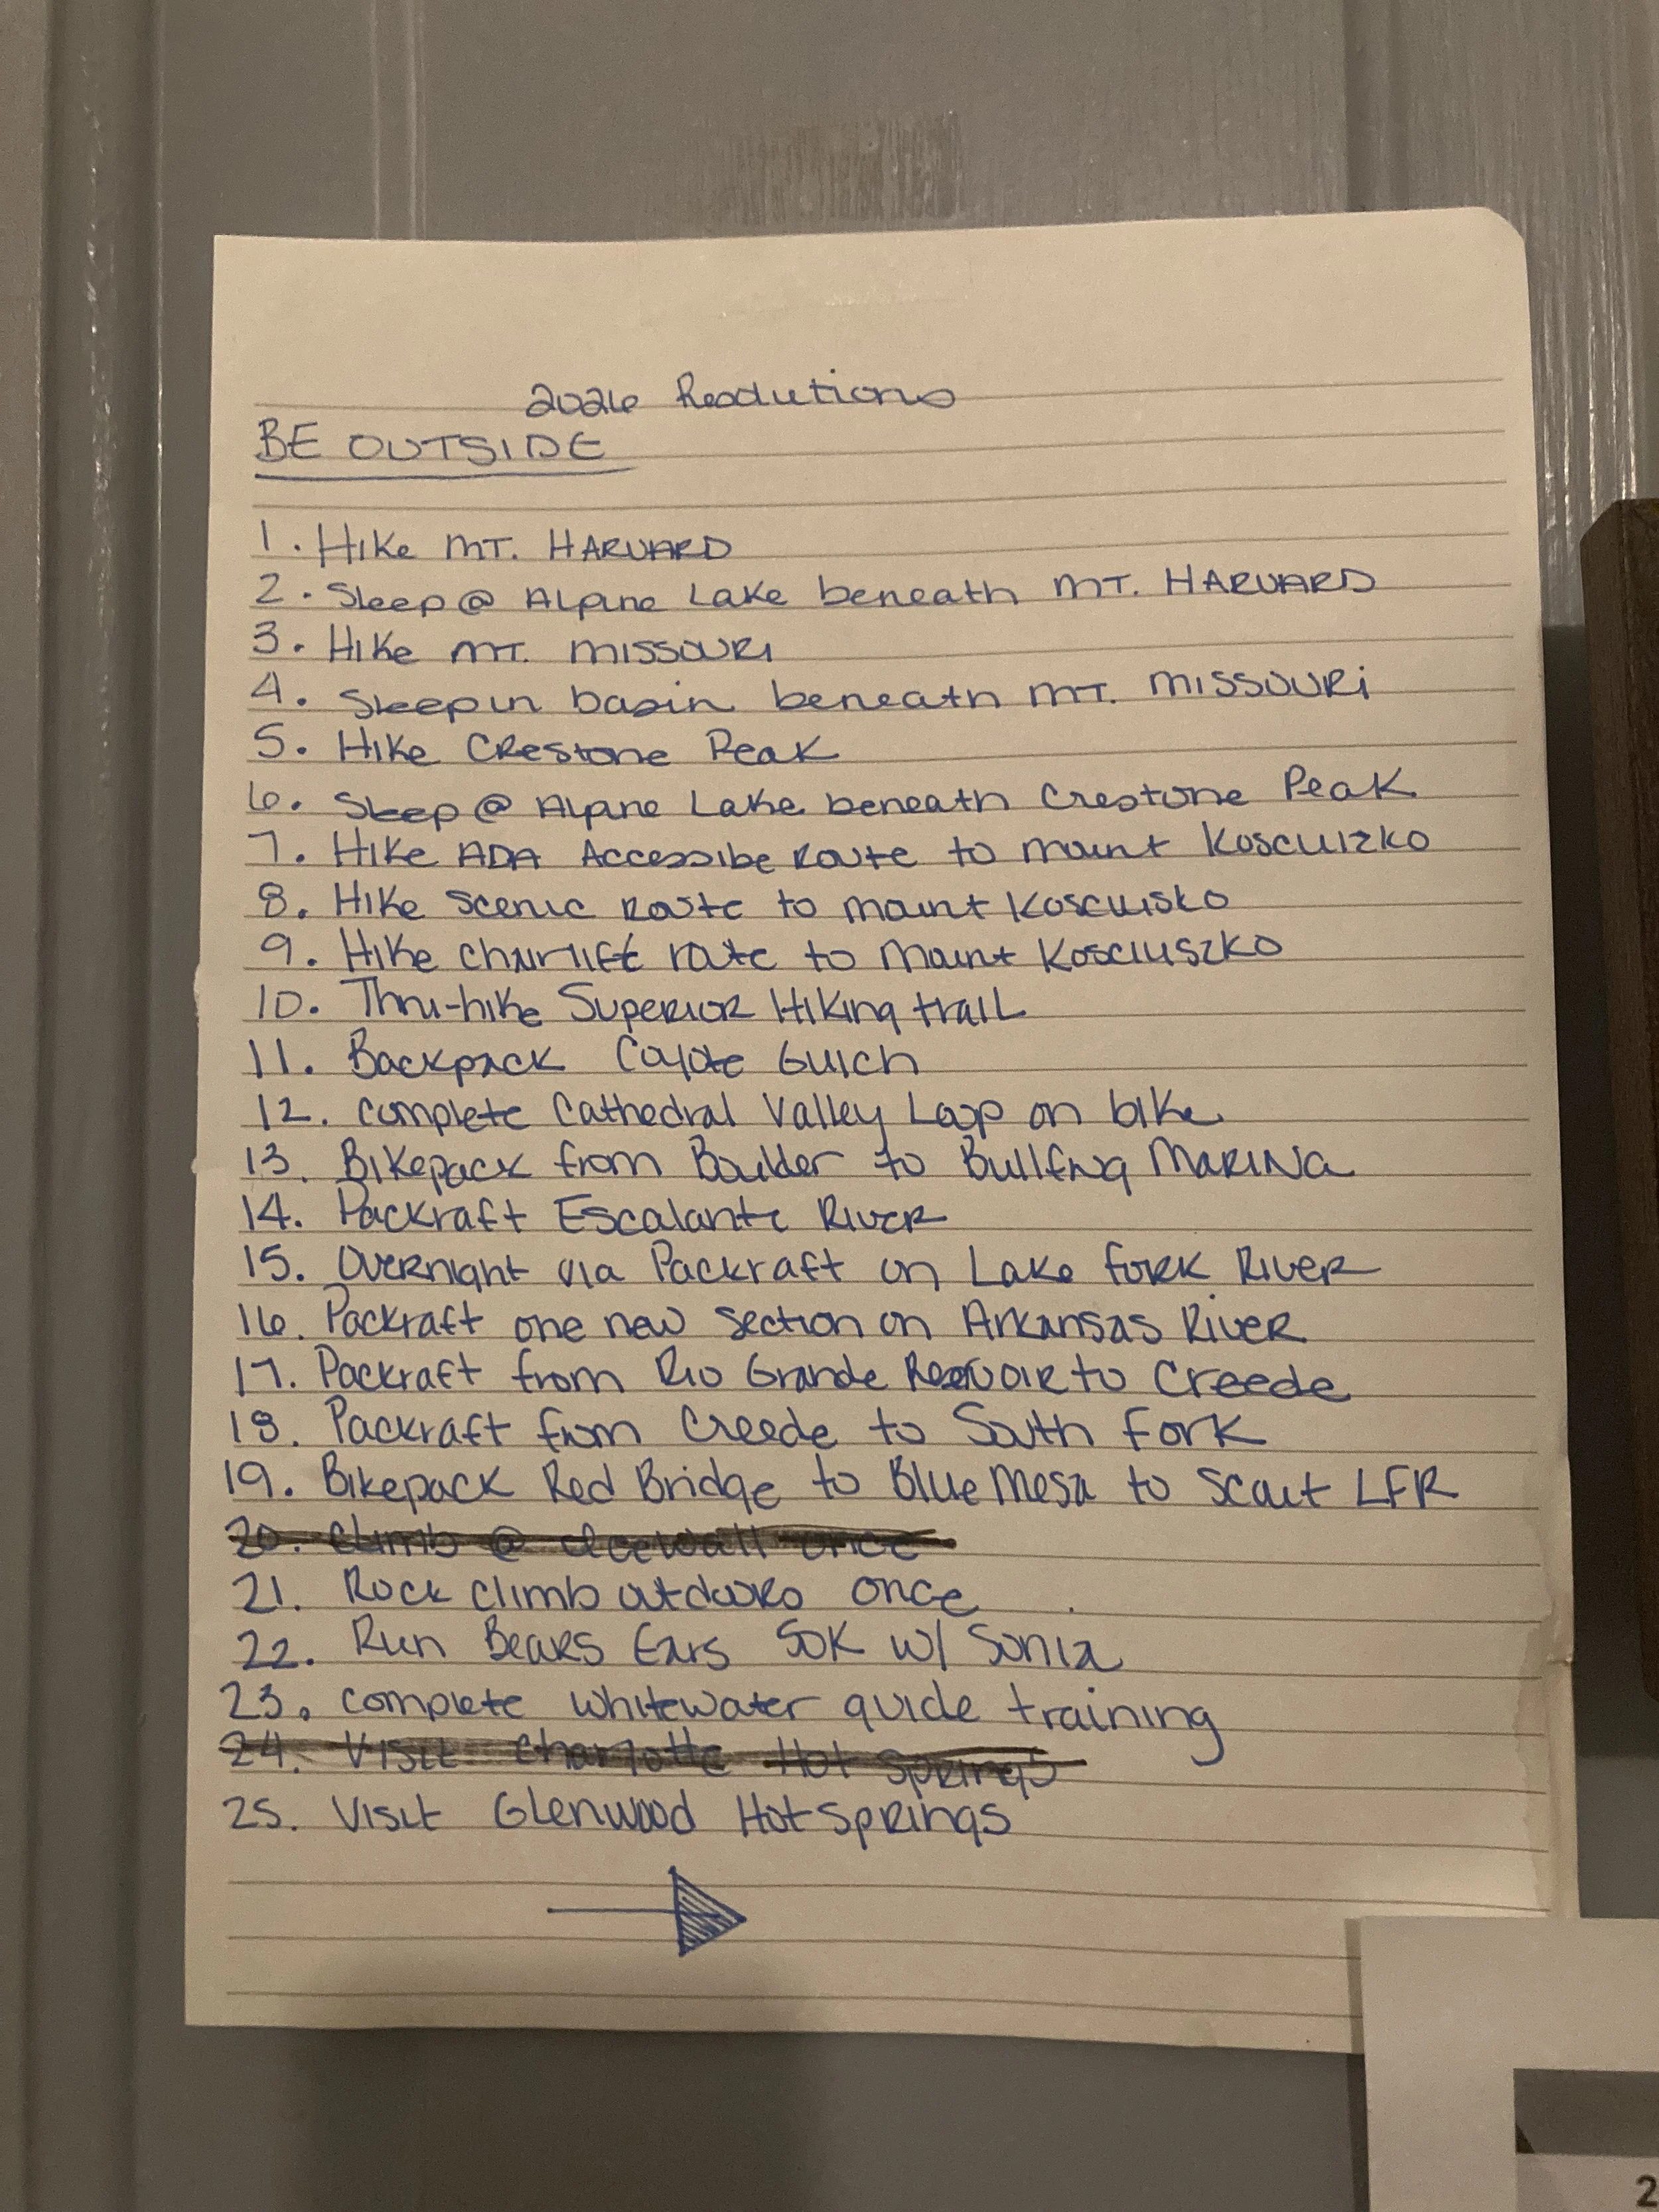 2026 Resolutions
BE OUTSIDE
1. Hike MT. HARVARD
2. Sleep @ Alpine Lake beneath MT. HARVARD
3. Hike MT. MISSOURI
4. Sleep in basin beneath MT. MISSOURI
5. Hike Crestone Peak
6. Sleep @ Alpine Lake beneath Crestone Peak
7. Hike ADA Accessibe Route to Mount Kosciuizko
8. Hike Scenic Route to Mount Kosciuisko
9. Hike chairlift route to Mount Kosciuszko
10. Thru-hike Superior Hiking trail
11. Backpack Coyote Gulch
12. Complete Cathedral Valley Loop on bike
13. Bikepack from Boulder to Bullfrog Marina
14. Packraft Escalante River
15. Overnight via Packraft on Lake Fork River
16. Packraft one new section on Arkansas River
17. Packraft from Rio Grande Reservoir to Creede
18. Packraft from Creede to South Fork
19. Bikepack Red Bridge to Blue Mesa to Scout LFR
20. Climb @ Icewall once
21. Rock Climb outdoors once
22. Run Bears Ears 50K w/ Sonia
23. Complete whitewater guide training
24. Visit Charlotte Hot Springs
25. Visit Glenwood Hot Springs
2